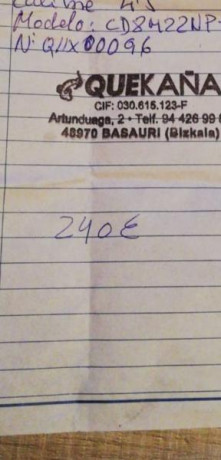 Modelo: CD8422NP-
Nº QIIX00096
QUEKAÑA
CIF: 030.615.123-F
Artunduaga, 2 - Telf. 94 426 99
48970 BASAURI (Bizkaia)
240€